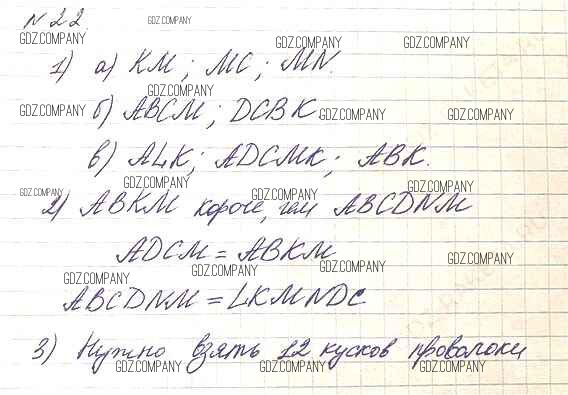 N 22.
GDZ.COMPANY
GDZ.COMPANY GDZ.COMPANY GDZ.COMPANY
1) а) KM; MC; MN.
GDZ.COMPANY
GDZ.COMPANY б) ABCM; DCBK GDZ.COMPANY GDZ.COMPANY
в) ALK; ADCMK; ABK.
GDZ.COMPANY GDZ.COMPANY
GDZ.COMPANY GDZ.COMPANY
2) ABKM короче, чем ABCDNM
ADCM = ABKM
GDZ.COMPANY GDZ.COMPANY GDZ.COMPANY
GDZ.COMPANY
ABCDNM = LKMNDC
3) Нужно взять 12 кусков проволоки
GDZ.COMPANY GDZ.COMPANY GDZ.COMPANY